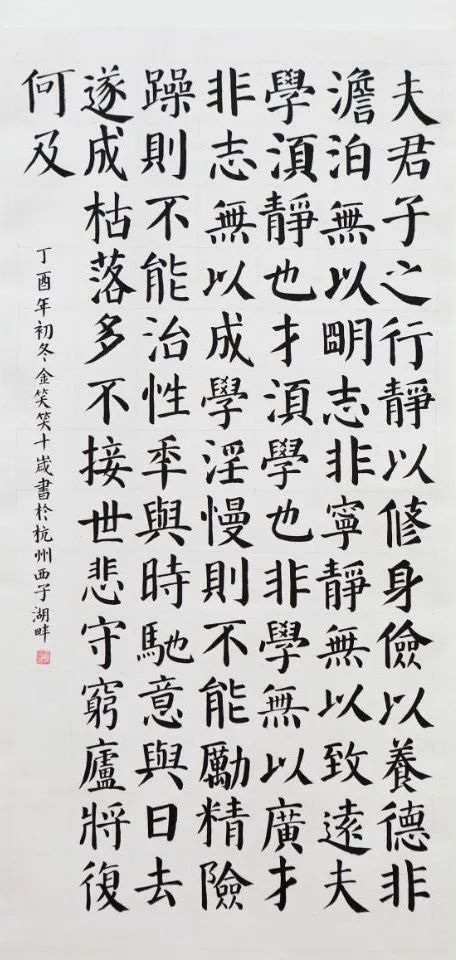 夫君子之行靜以修身儉以養德非
澹泊無以明志非寧靜無以致遠夫
學湏靜也才湏學也非學無以廣才
非志無以成學淫慢則不能勵精險
躁則不能治性年與時馳意與日去
遂成枯落多不接世悲守窮廬將復
何及
丁酉年初冬金笑笑十歲書於杭州西子湖畔